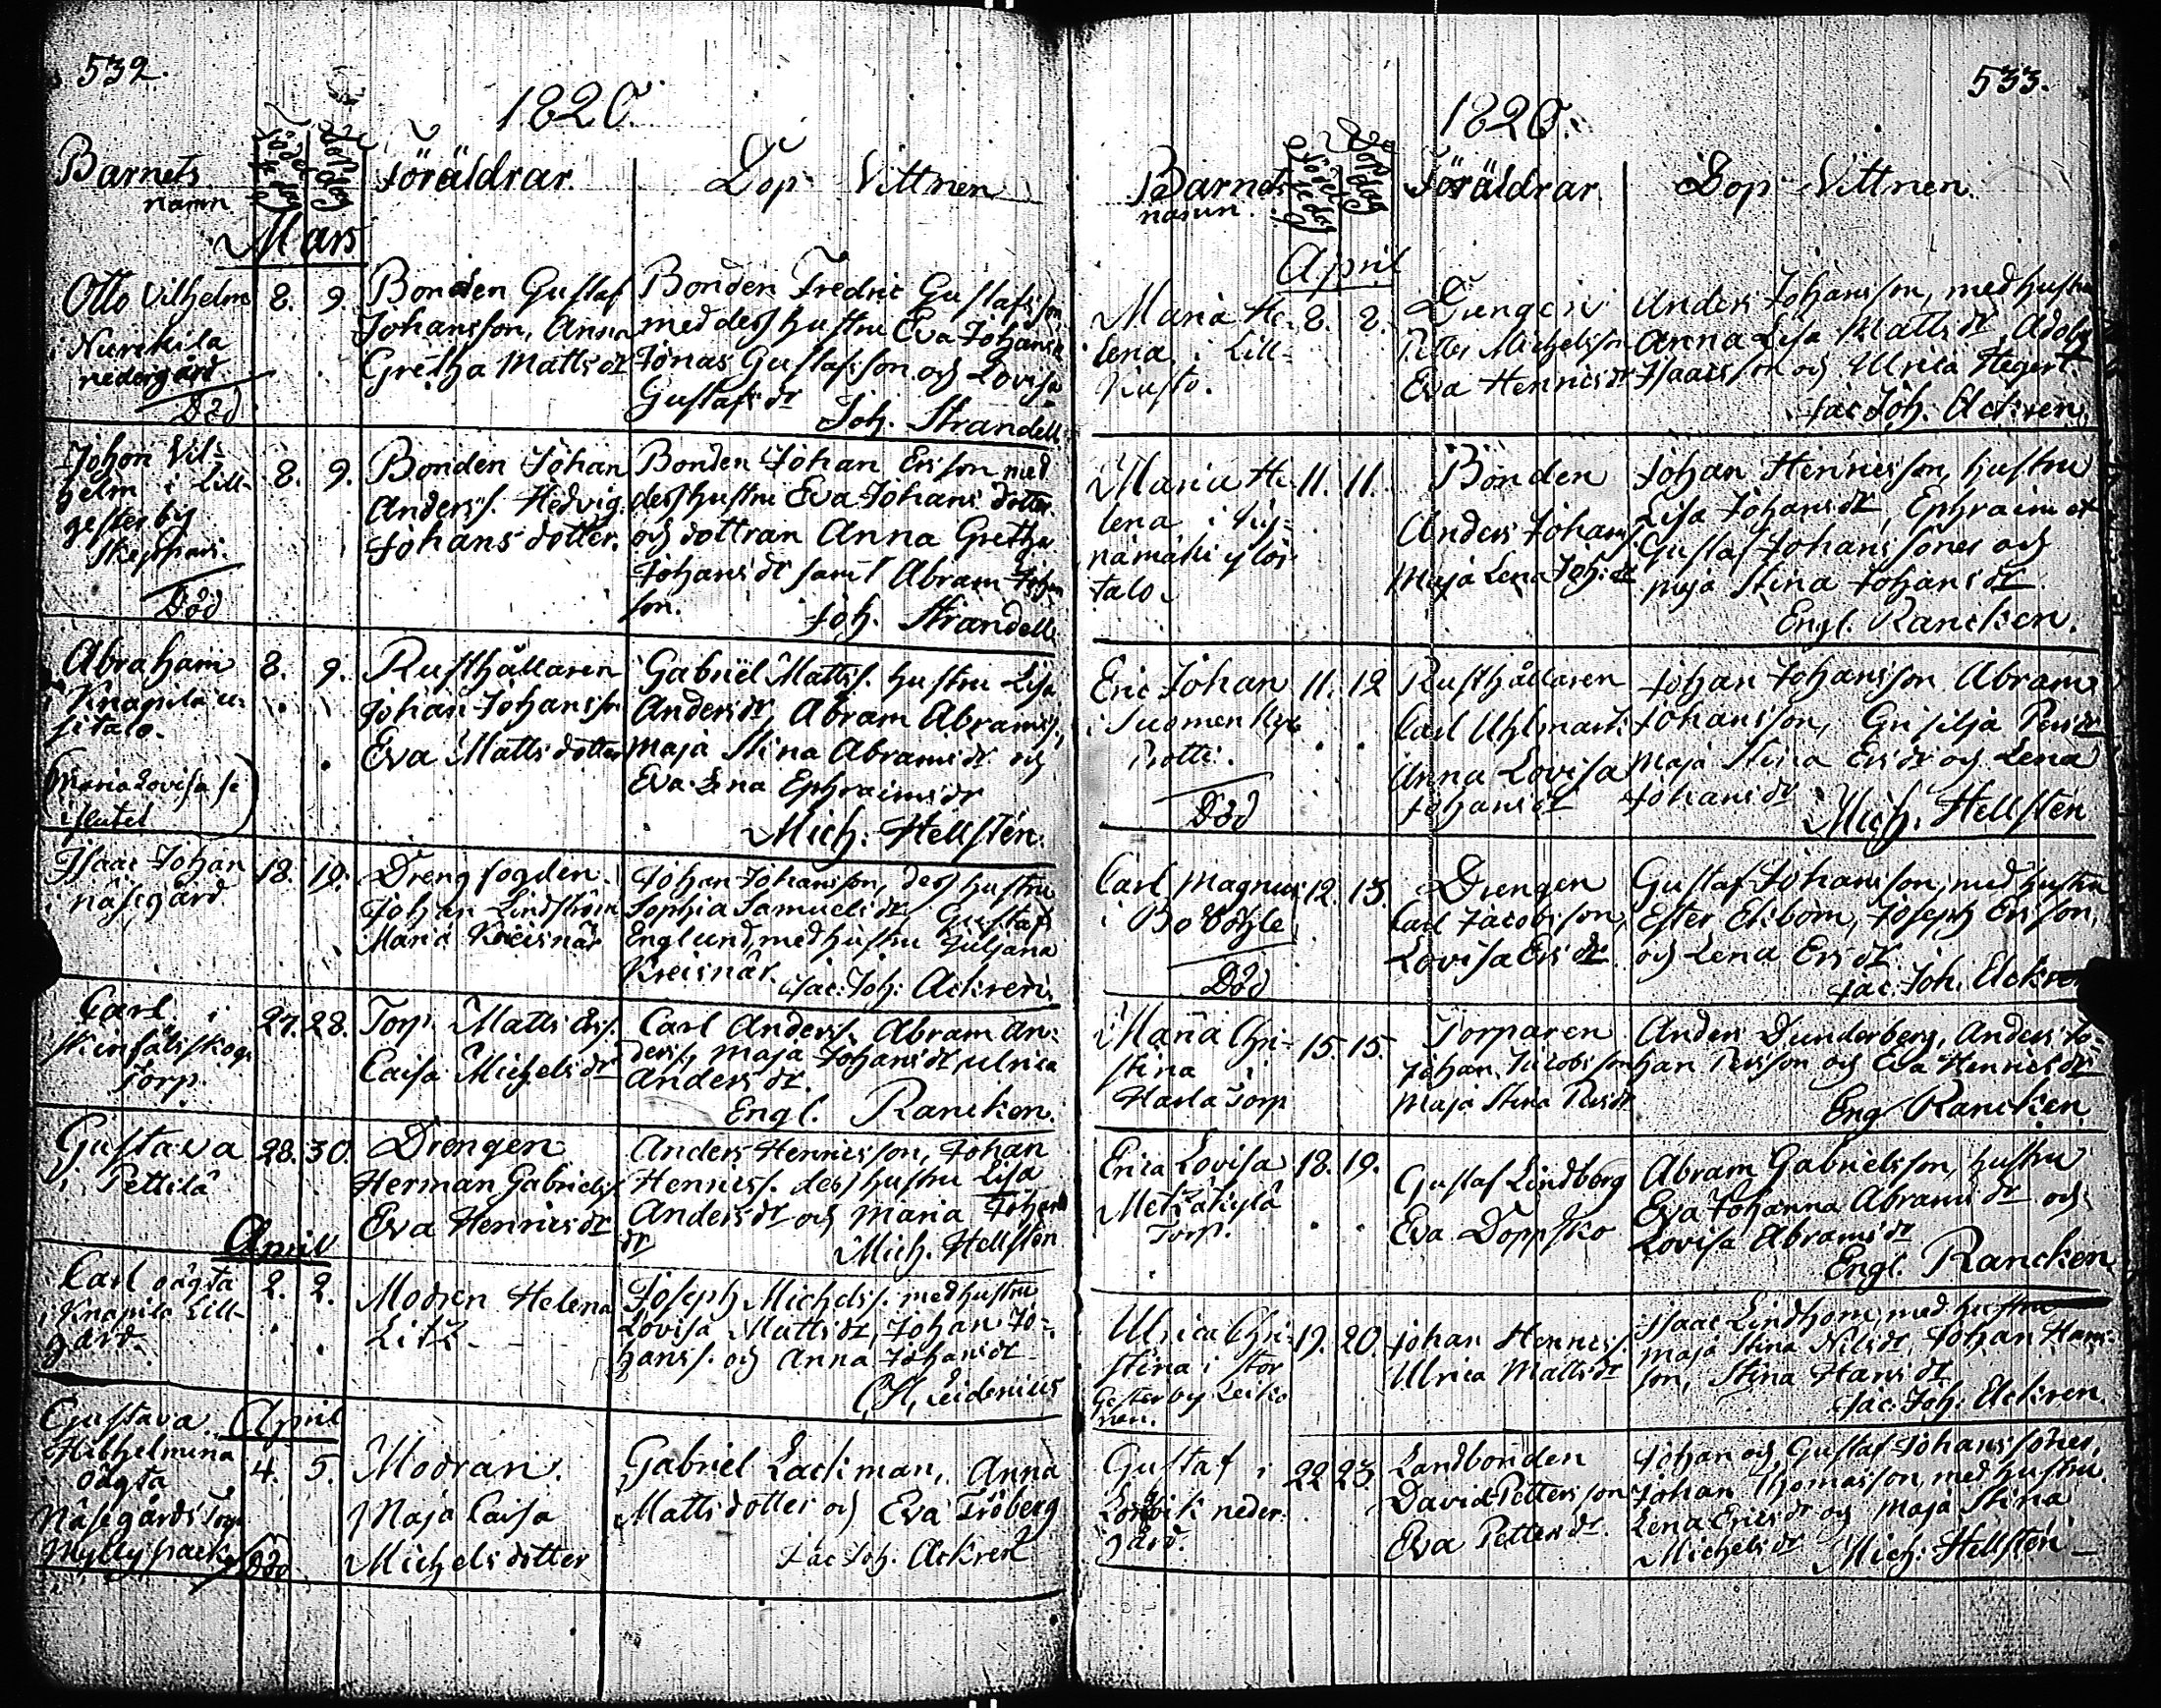 532.
1820.
Barnets
namn
Födelsedag
Dopdag
Föräldrar.
Dop Vittnen
Mars
Otto Vilhelm
i Nurckila
nedergård
Död
8. 9.
Bonden Gustaf
Johansson, Anna
Gretha Matts dr
Bonden Fredric Gustafsson,
med dess hustru Eva Johans dr
Jonas Gustafsson och Lovisa
Gustafs dr
Joh. Strandell
Johan Vil-
helm i Lill-
gesterby
Skeppari.
Död
8. 9.
Bonden Johan
Anderss. Hedvig
Johans dotter.
Bonden Johan Ersson med
dess hustru Eva Johans dotter
och dottran Anna Gretha
Johans dr samt Abram Johan
son.
Joh. Strandell
Abraham
i Knapila u-
sitalo.
(Maria Lovisa se
i slutet)
8. 9.
Rusthållaren
Johan Johansson
Eva Matts dotter
Gabriel Mattss. hustru Lisa
Anders dr, Abram Abramss,
Maja Stina Abrams dr och
Eva Lena Ephraims dr
Mich: Hellsten.
Isaac Johan
i näsegård
18. 19.
Drengfogden
Johan Lindström
Maria Kreisnär
Johan Johansson, dess hustru
Sophia Samuels dr, Gustaf
Englund, med hustru Juljana
Kreisnär.
Jac: Joh: Ackren.
Carl i
Skinfälsskogs
Torp.
27. 28.
Torp. Matts Erss.
Caisa Michels dr
Carl Anderss. Abram An-
derss, Maja Johans dr, Ulrica
Anders dr.
Engl. Rancken.
Gustava
i Pettilä
28. 30.
Drengen
Herman Gabrielss.
Eva Henrics dr
Anders Henricsson, Johan
Henricss. dess hustru Lisa
Anders dr och Maria Johans
dr
Mich. Hellsten
April
Carl oägta
i Knapila Lill-
gård.
2. 2.
Modren Helena
Litz.
Joseph Michelss. med hustru
Lovisa Matts dr, Johan Jo-
hanss. och Anna Johans dr
C. H. Leidenius
April
Gustava
Wilhelmina
oägta
Näsegårds Torp
Myllypack
Död
4. 5.
Modran.
Maja Caisa
Michels dotter
Gabriel Lackman, Anna
Matts dotter och Eva Fröberg
Jac Joh. Ackren
533.
1820.
Barnets
namn.
Födelsedag
Dopdag
Föräldrar
Dop Vittnen.
April
Maria He-
lena i Lill-
Kusto.
8. 8.
Drengen
Petter Michelsson
Eva Henrics dr
Anders Johansson, med hustru
Anna Lisa Matts dr, Adolph
Isaacsson och Ulrica Hegert.
Jac Joh. Ackren.
Maria He-
lena i
namäki ylös
talo.
11. 11.
Bonden
Anders Johanss.
Maja Lena Joh: dr
Johan Henricsson, hustru
Lisa Johans dr, Ephraim et
Gustaf Johanssöner och
Maja Stina Johans dr
Engl. Rancken.
Eric Johan
i Suomenkylä
Rotti.
Död
11. 12
Rusthållaren
Carl Uhlmark
Anna Lovisa
Johans dr
Johan Johansson, Abram
Johansson, Grisilja Pers dr
Maja Stina Ers dr och Lena
Johans dr
Mich: Hellsten
Carl Magnus
i Bo Böhle
Död
12. 13.
Drengen
Carl Jacobsson,
Lovisa Ers dr
Gustaf Johansson, med hustru
Ester Ekbom, Joseph Ersson,
och Lena Ers dr.
Jac. Joh. Ackren
Maria Chri-
stina i
Harla Torp
15. 15.
Torparen
Johan Jacobsson
Maja Stina Pers dr
Anders Dunderberg, Anders Jo-
han Persson och Eva Henrics dr
Engl Rancken
Erica Lovisa
Metzäkylä
Torp.
18. 19.
Gustaf Lindberg
Eva Doppsko
Abram Gabrielsson, hustru
Eva Johanna Abrams dr och
Lovisa Abrams dr
Engl. Rancken
Ulrica Chri-
stina i Stor
Gesterby Leiko
nen.
19. 20.
Johan Henricss.
Ulrica Matts dr
Isaac Lindhom, med hustru
Maja Stina Nils dr, Johan Hans-
son, Stina Hans dr
Jac: Joh: Ackren.
Gustaf i
neder-
gård.
22 23
Landbonden
David Pettersson
Eva Petters dr.
Johan och Gustaf Johanssöner,
Johan Thomasson, med hustru
Lena Erics dr och Maja Stina
Michels dr
Mich: Hellsten